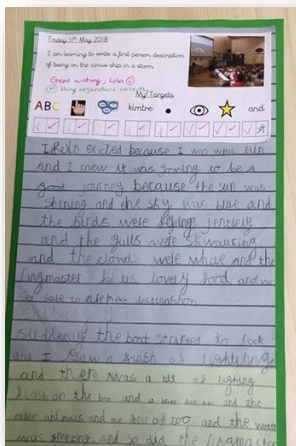 Friday 11th May 2018
I am learning to write a first person description
of being on the circus ship in a storm.
Great writing, Lola
Using conjunctions correctly
My Targets
ABC kintre . and
I felt excited because I was with
and I knew it was going to be a
good journey because the sun was
shining and the sky was blue and
the birds were flying
and the gulls were
and the clowd were white and the
ringmaster led us lovely food and we
set sale to are new
suddenly the boat started to rock
and I saw a flash of lighting
and there was a bit of lighting
flash on the and a and the
other animals and me fell of too, and the water
was freezing, and so did the ringmaster